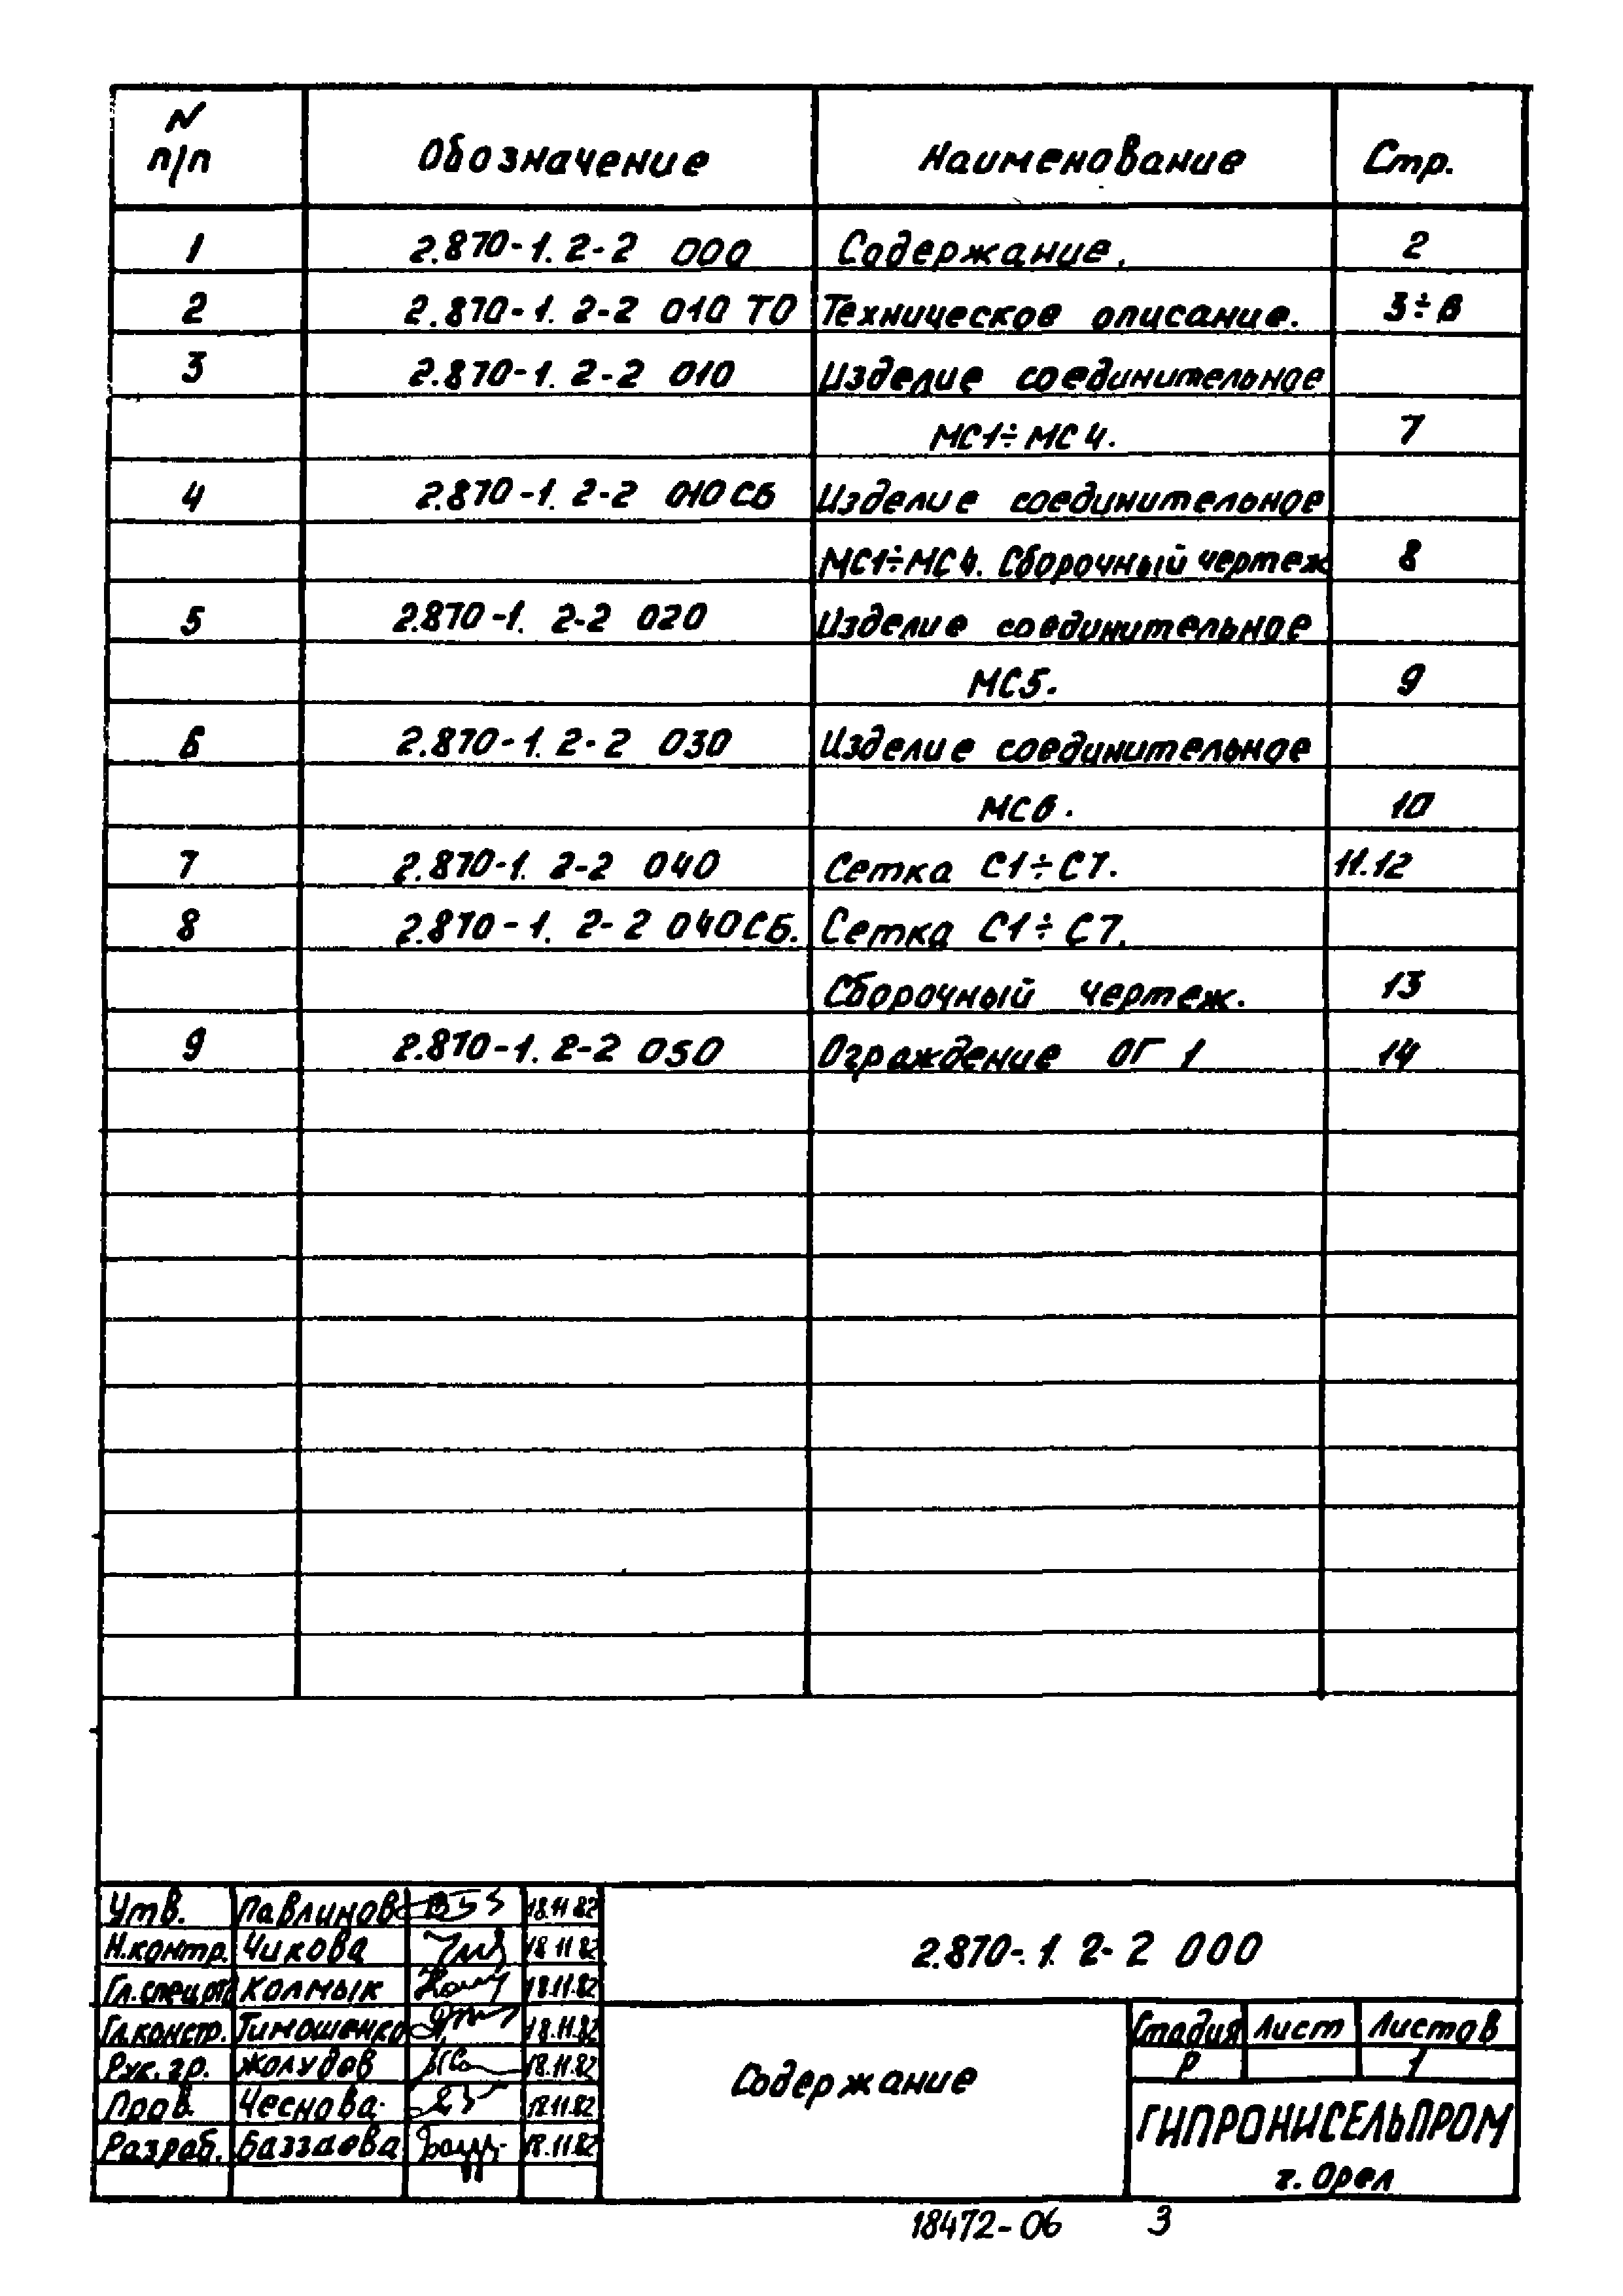 N п/п Обозначение Наименование Стр.
1 2.870-1. 2-2 000 Содержание. 2
2 2.870-1. 2-2 010 ТО Техническое описание. 3÷6
3 2.870-1. 2-2 010 Изделие соединительное
МС1÷МС4. 7
4 2.870-1. 2-2 010СБ Изделие соединительное
МС1÷МС4. Сборочный чертеж 8
5 2.870-1. 2-2 020 Изделие соединительное
МС5. 9
6 2.870-1. 2-2 030 Изделие соединительное
МС6. 10
7 2.870-1. 2-2 040 Сетка С1÷С7. 11.12
8 2.870-1. 2-2 040СБ. Сетка С1÷С7.
Сборочный чертеж. 13
9 2.870-1. 2-2 050 Ограждение ОГ 1 14
Утв. Павлинов 18.11 82
Н.контр. Чикова 18 11 82
Гл.спецот Колмык 18.11.82
Гл.констр. Тимошенко 18.11.82
Рук. гр. Жолудов 18.11.82
Пров. Чеснова 18.11.82
Разраб. Баззаева 18.11.82
2.870-1. 2-2 000
Содержание
Стадия Лист Листов
Р 1
ГИПРОНИСЕЛЬПРОМ
г. Орел
18472-06 3